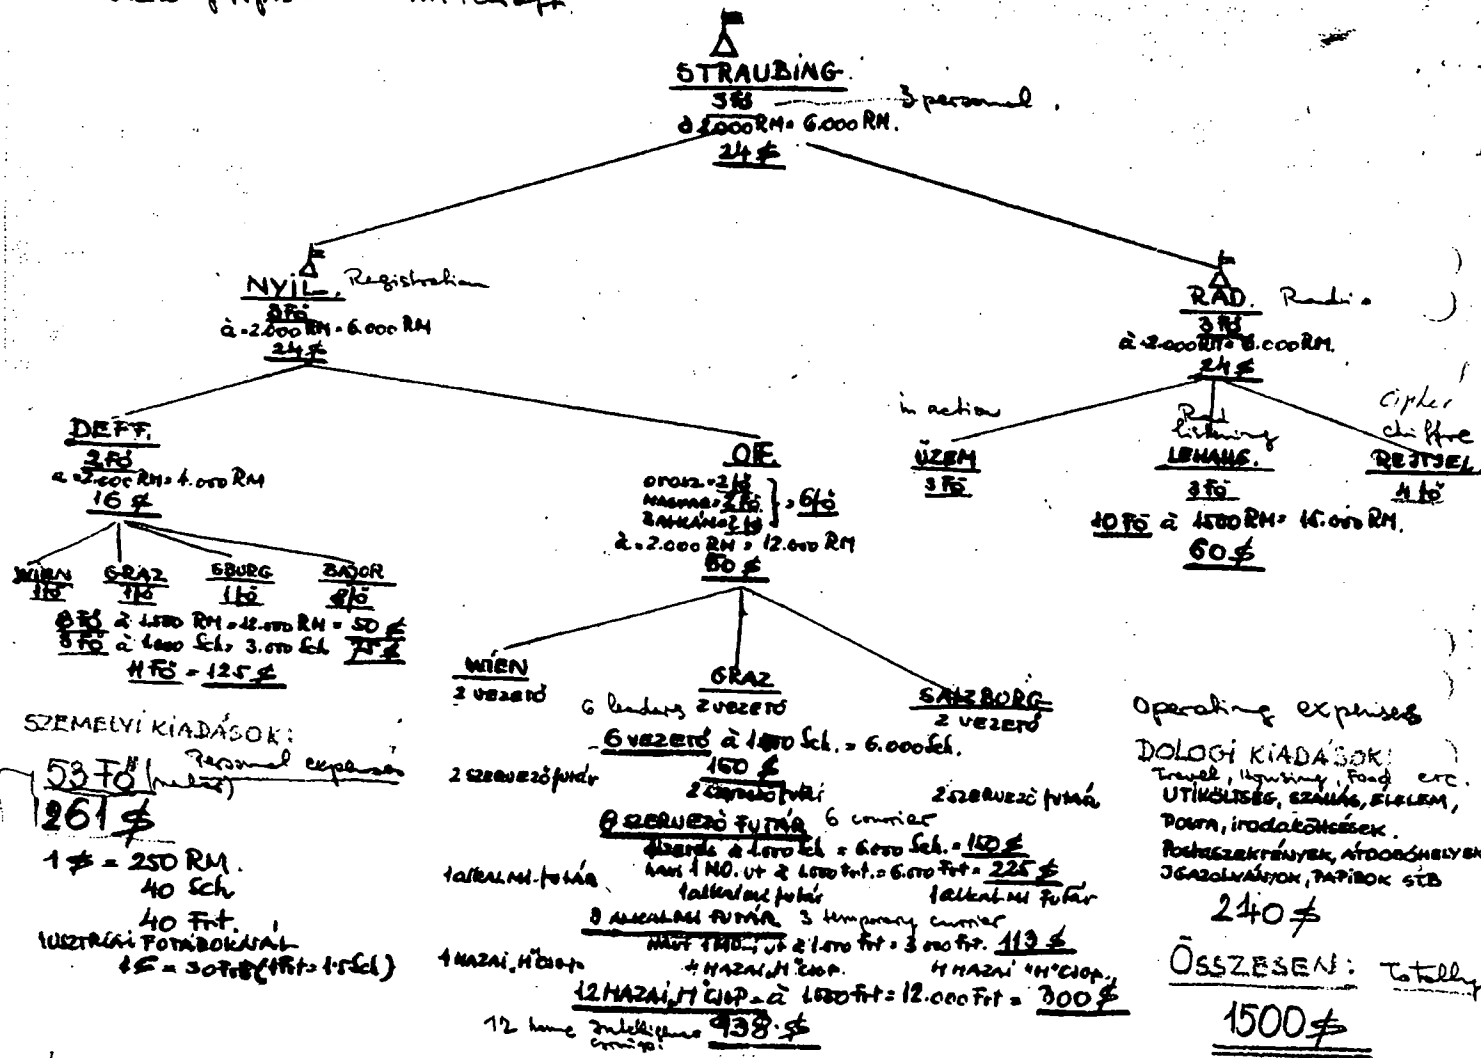 STRAUBING.
3 fő 3 personal.
à 2.000 RM = 6.000 RM.
24 $
NYIL. Registration
3 Fő
à = 2.000 RM = 6.000 RM
24 $
RAD. Radio
3 Fő
à = 2.000 RM = 6.000 RM.
24 $
DEFF.
2 Fő
à = 2.000 RM = 4.000 RM
16 $
OFF.
OROSZ = 2 fő
MAGYAR = 2 fő = 6 fő
BALKÁN = 2 fő
à = 2.000 RM = 12.000 RM
50 $
in action
ÜZEM
3 Fő
Rad listening
LEHALLG.
3 Fő
cipher
chiffre
REJTJEL
4 fő
10 Fő à 1500 RM = 15.000 RM.
60 $
WIEN GRAZ SBURG BAJOR
1 fő 1 fő 1 fő 8 fő
8 Fő à 1.500 RM = 12.000 RM = 50 $
3 Fő à 1.000 Sch = 3.000 Sch 75 $
11 Fő = 125 $
WIEN
2 VEZETŐ
GRAZ
6 leaders 2 VEZETŐ
SALZBURG
2 VEZETŐ
6 VEZETŐ à 1.000 Sch. = 6.000 Sch.
150 $
2 SZERVEZŐ futár 2 SZERVEZŐ futár 2 SZERVEZŐ futár
6 SZERVEZŐ FUTÁR 6 courier
à 1.000 Sch = 6.000 Sch. = 150 $
1 MO. út à 1.000 Frt. = 6.000 Frt = 225 $
1 alkalmi futár 1 alkalmi futár 1 alkalmi futár
3 ALKALMI FUTÁR 3 temporary courier
1 MO. út à 1.000 Frt = 3.000 Frt. 113 $
4 HAZAI "H" CSOP. 4 HAZAI "H" CSOP. 4 HAZAI "H" CSOP.
12 HAZAI "H" CSOP = à 1.000 Frt = 12.000 Frt = 300 $
12 home intelligence 938 $
SZEMÉLYI KIADÁSOK:
Personal expenses
53 Fő
261 $
1 $ = 250 RM.
40 Sch
40 Frt.
AUSZTRIAI FUTÁROKNÁL
1 $ = 30 Frt (1 Frt = 1.5 Sch)
Operating expenses
DOLOGI KIADÁSOK:
Travel, Housing, Food etc.
UTIKÖLTSÉG, SZÁLLÁS, ÉLELEM,
POSTA, irodaköltségek.
POSTASZEKRÉNYEK, ÁTDOBÓHELYEK
IGAZOLVÁNYOK, PAPIROK STB
240 $
ÖSSZESEN: Totally
1500 $